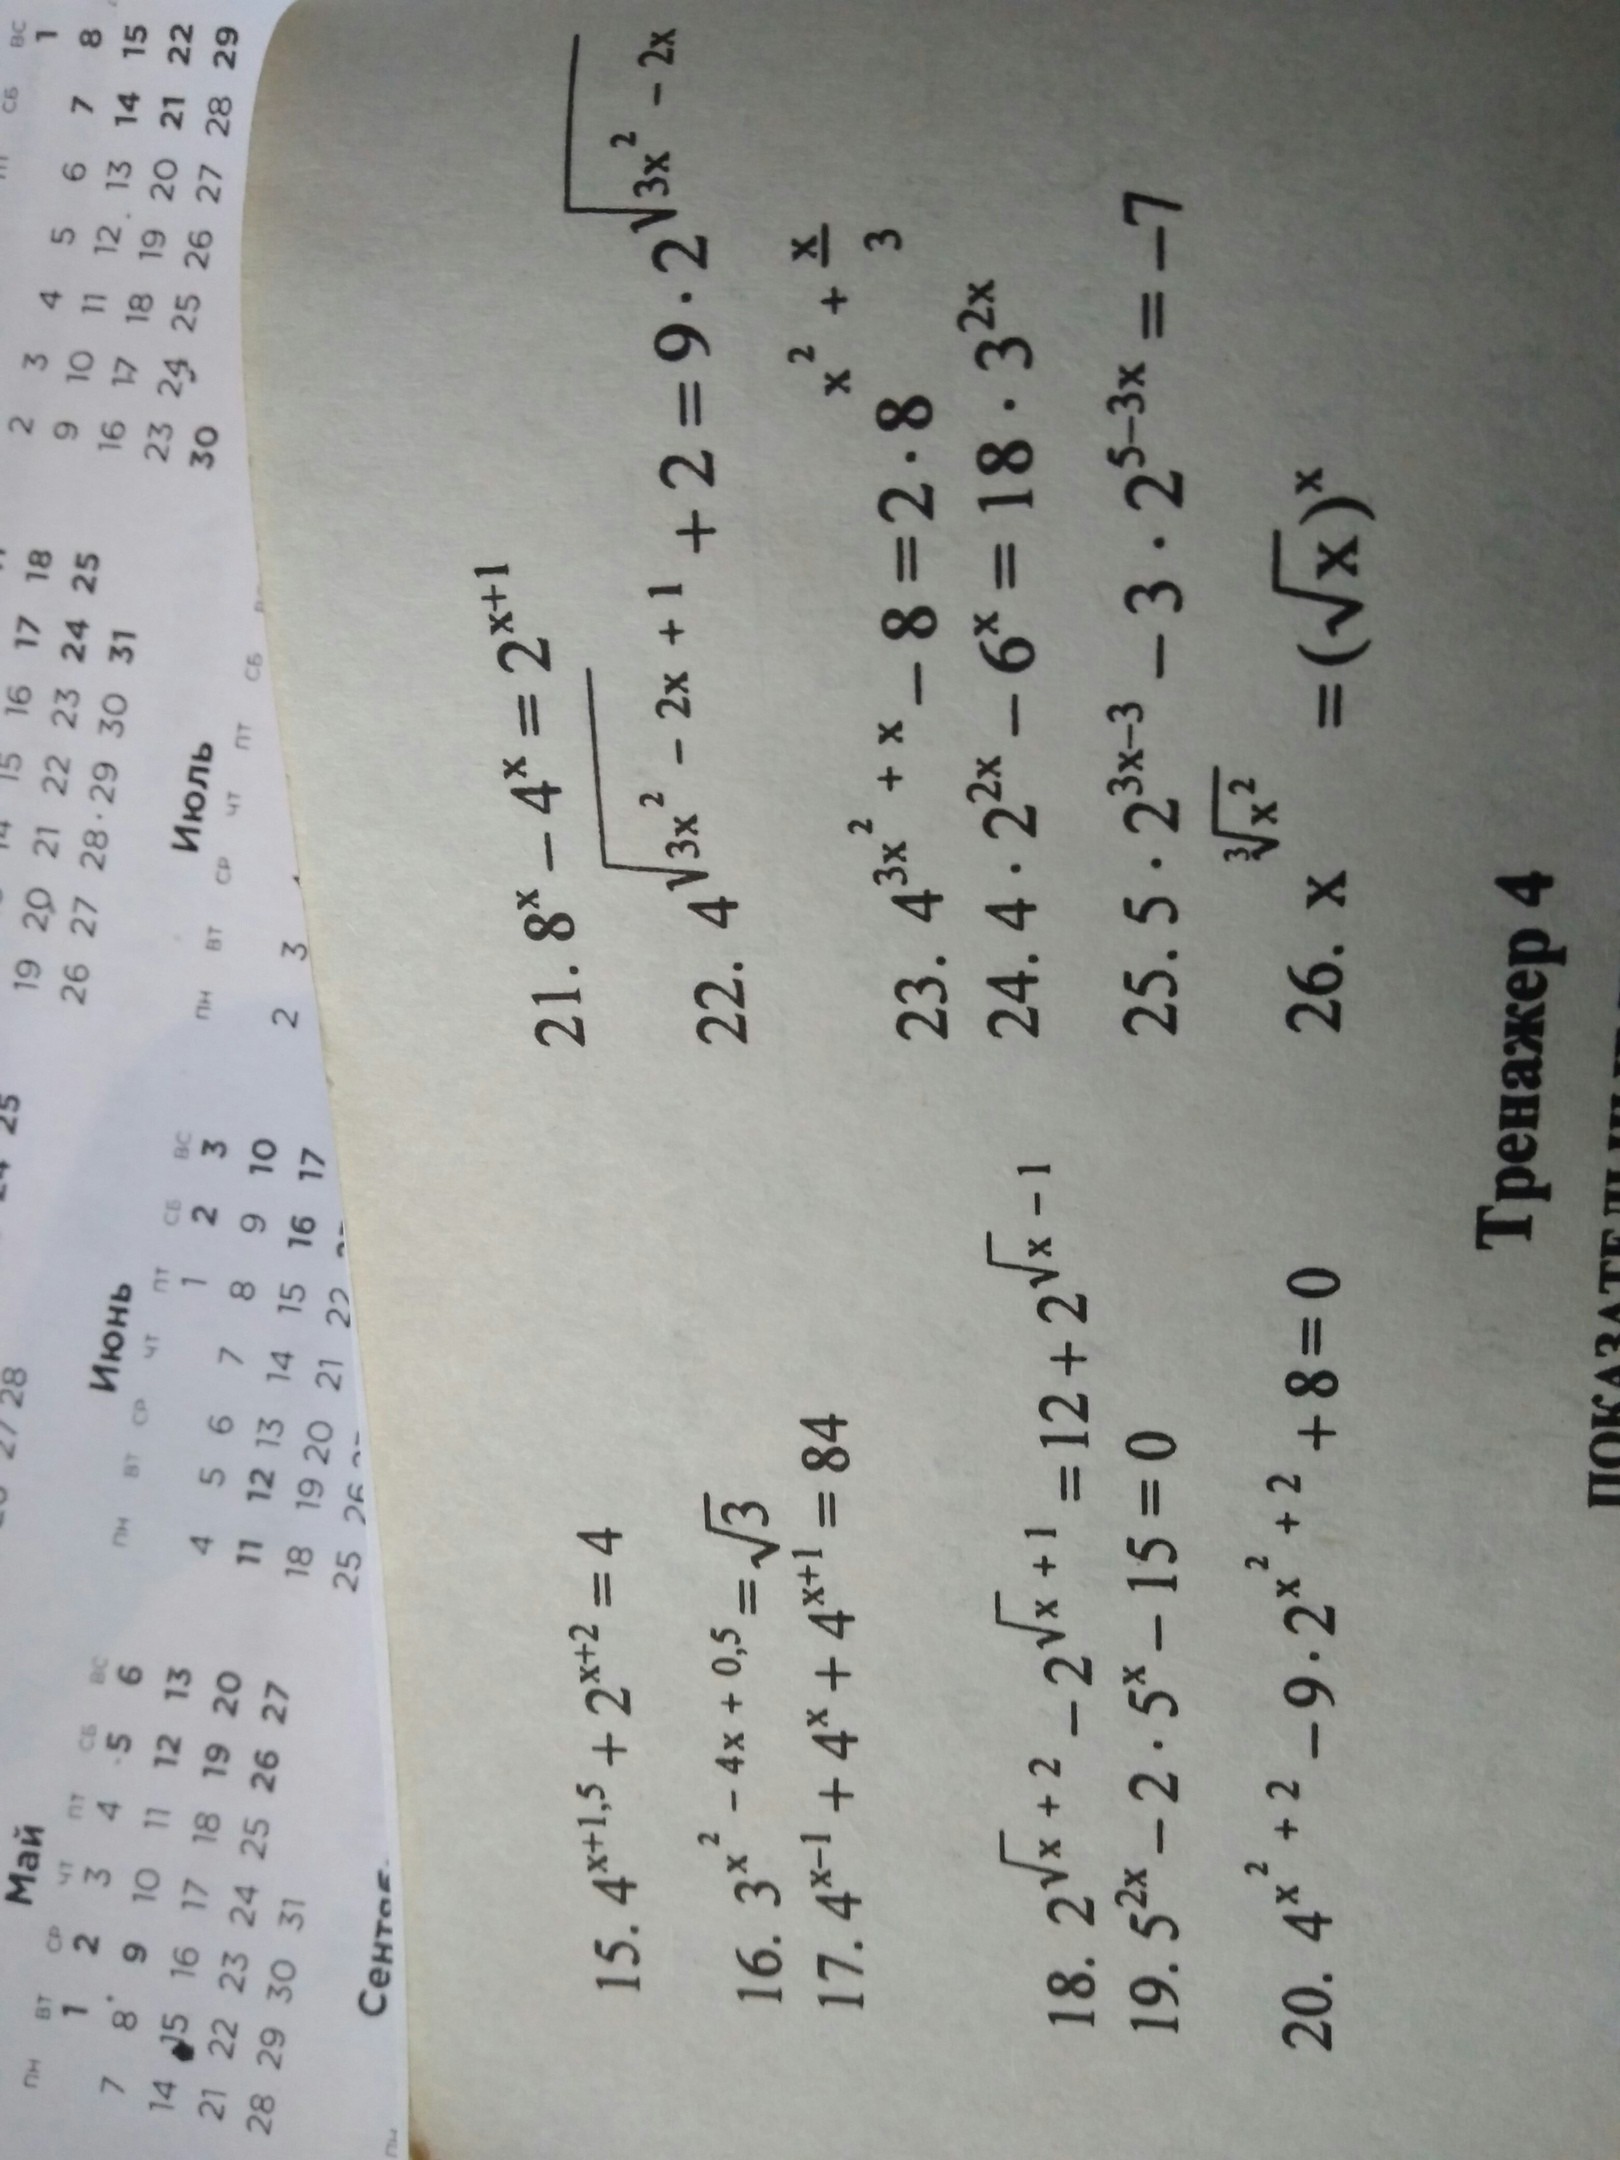 Май
пн вт ср чт пт сб вс
1 2 3 4 5 6
7 8 9 10 11 12 13
14 15 16 17 18 19 20
21 22 23 24 25 26 27
28 29 30 31
Июнь
пн вт ср чт пт сб вс
1 2 3
4 5 6 7 8 9 10
11 12 13 14 15 16 17
18 19 20 21 22
25
Июль
пн вт ср чт пт сб
2 3
14 15 16 17 18
19 20 21 22 23 24 25
26 27 28 29 30 31
сб вс
1
2 3 4 5 6 7 8
9 10 11 12 13 14 15
16 17 18 19 20 21 22
23 24 25 26 27 28 29
30
15. 4^{x+1,5} + 2^{x+2} = 4
16. 3^{x^2 - 4x + 0,5} = √3
17. 4^{x-1} + 4^x + 4^{x+1} = 84
18. 2^{√x + 2} - 2^{√x + 1} = 12 + 2^{√x - 1}
19. 5^{2x} - 2 · 5^x - 15 = 0
20. 4^{x^2 + 2} - 9 · 2^{x^2 + 2} + 8 = 0
21. 8^x - 4^x = 2^{x+1}
22. 4^{√(3x^2 - 2x + 1)} + 2 = 9 · 2^{√(3x^2 - 2x)}
23. 4^{3x^2 + x} - 8 = 2 · 8^{x^2 + x/3}
24. 4 · 2^{2x} - 6^x = 18 · 3^{2x}
25. 5 · 2^{3x-3} - 3 · 2^{5-3x} = -7
26. x^{∛(x^2)} = (√x)^x
Тренажер 4